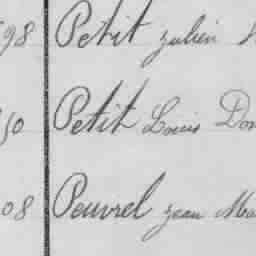 98 Petit Julien
50 Petit Louis Don
08 Peuvrel Jean Ma